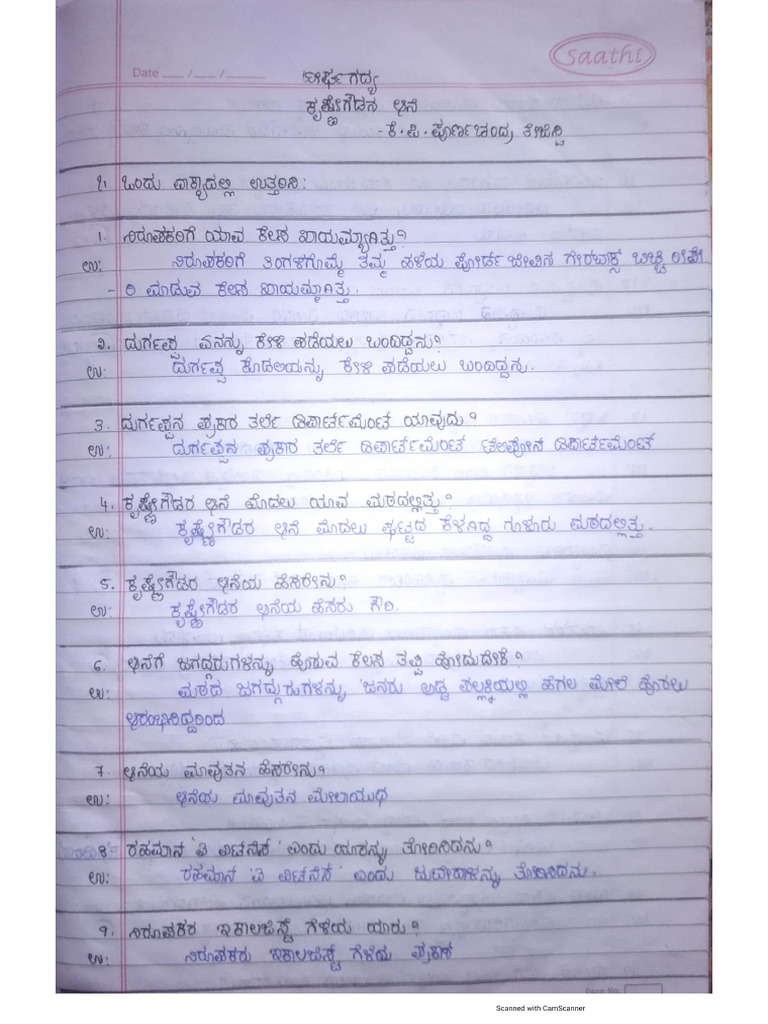 saathi
Date __/__/____
ದೀರ್ಘಗದ್ಯ
ಕೃಷ್ಣೇಗೌಡನ ಆನೆ
- ಕೆ. ಪಿ. ಪೂರ್ಣಚಂದ್ರ ತೇಜಸ್ವಿ
೪. ಒಂದು ವಾಕ್ಯದಲ್ಲಿ ಉತ್ತರಿಸಿ:
1. ನಿರೂಪಕರಿಗೆ ಯಾವ ಕೆಲಸ ಖಾಯಮ್ಮಾಗಿತ್ತು?
ಉ: ನಿರೂಪಕರಿಗೆ ತಿಂಗಳಿಗೊಮ್ಮೆ ತಮ್ಮ ಹಳೆಯ ಫೋರ್ಡ್ ಜೀಪಿನ ಗೇರಬಾಕ್ಸ ಬಿಚ್ಚಿ ರಿಪೇ
- ರಿ ಮಾಡುವ ಕೆಲಸ ಖಾಯಮ್ಮಾಗಿತ್ತು.
2. ದುರ್ಗಪ್ಪ ಏನನ್ನು ಕೇಳಿ ಪಡೆಯಲು ಬಂದಿದ್ದನು?
ಉ: ದುರ್ಗಪ್ಪ ಕೊಡಲಿಯನ್ನು ಕೇಳಿ ಪಡೆಯಲು ಬಂದಿದ್ದನು.
3. ದುರ್ಗಪ್ಪನ ಪ್ರಕಾರ ತರ್ಲೆ ಡಿಪಾರ್ಟಮೆಂಟ ಯಾವುದು?
ಉ: ದುರ್ಗಪ್ಪನ ಪ್ರಕಾರ ತರ್ಲೆ ಡಿಪಾರ್ಟಮೆಂಟ ಟೆಲಿಪೋನ ಡಿಪಾರ್ಟಮೆಂಟ
4. ಕೃಷ್ಣೇಗೌಡರ ಆನೆ ಮೊದಲು ಯಾವ ಮಠದಲ್ಲಿತ್ತು?
ಉ: ಕೃಷ್ಣೇಗೌಡರ ಆನೆ ಮೊದಲು ಘಟ್ಟದ ಕೆಳಗಿದ್ದ ಗೂಳೂರು ಮಠದಲ್ಲಿತ್ತು.
5. ಕೃಷ್ಣೇಗೌಡರ ಆನೆಯ ಹೆಸರೇನು?
ಉ: ಕೃಷ್ಣೇಗೌಡರ ಆನೆಯ ಹೆಸರು ಗೌರಿ.
6. ಆನೆಗೆ ಜಗದ್ಗುರುಗಳನ್ನು ಹೊರುವ ಕೆಲಸ ತಪ್ಪಿ ಹೋದುದೇಕೆ?
ಉ: ಮಠದ ಜಗದ್ಗುರುಗಳನ್ನು ಜನರು ಅಡ್ಡ ಪಲ್ಲಕ್ಕಿಯಲ್ಲಿ ಹೆಗಲ ಮೇಲೆ ಹೊರಲು
ಆರಂಭಿಸಿದ್ದರಿಂದ
7. ಆನೆಯ ಮಾವುತನ ಹೆಸರೇನು?
ಉ: ಆನೆಯ ಮಾವುತನ ವೇಲಾಯುಧ
8 ರಹಮಾನ 'ಐ ವಿಟನೆಸ' ಎಂದು ಯಾರನ್ನು ತೋರಿಸಿದನು?
ಉ: ರಹಮಾನ 'ಐ ವಿಟನೆಸ' ಎಂದು ಜುಬೇದಾಳನ್ನು ತೋರಿಸಿದನು.
9. ನಿರೂಪಕರ ಇಕಾಲಜಿಸ್ಟ್ ಗೆಳೆಯ ಯಾರು?
ಉ: ನಿರೂಪಕರು ಇಕಾಲಜಿಸ್ಟ್ ಗೆಳೆಯ ಪ್ರಕಾಶ
Page No.
Scanned with CamScanner